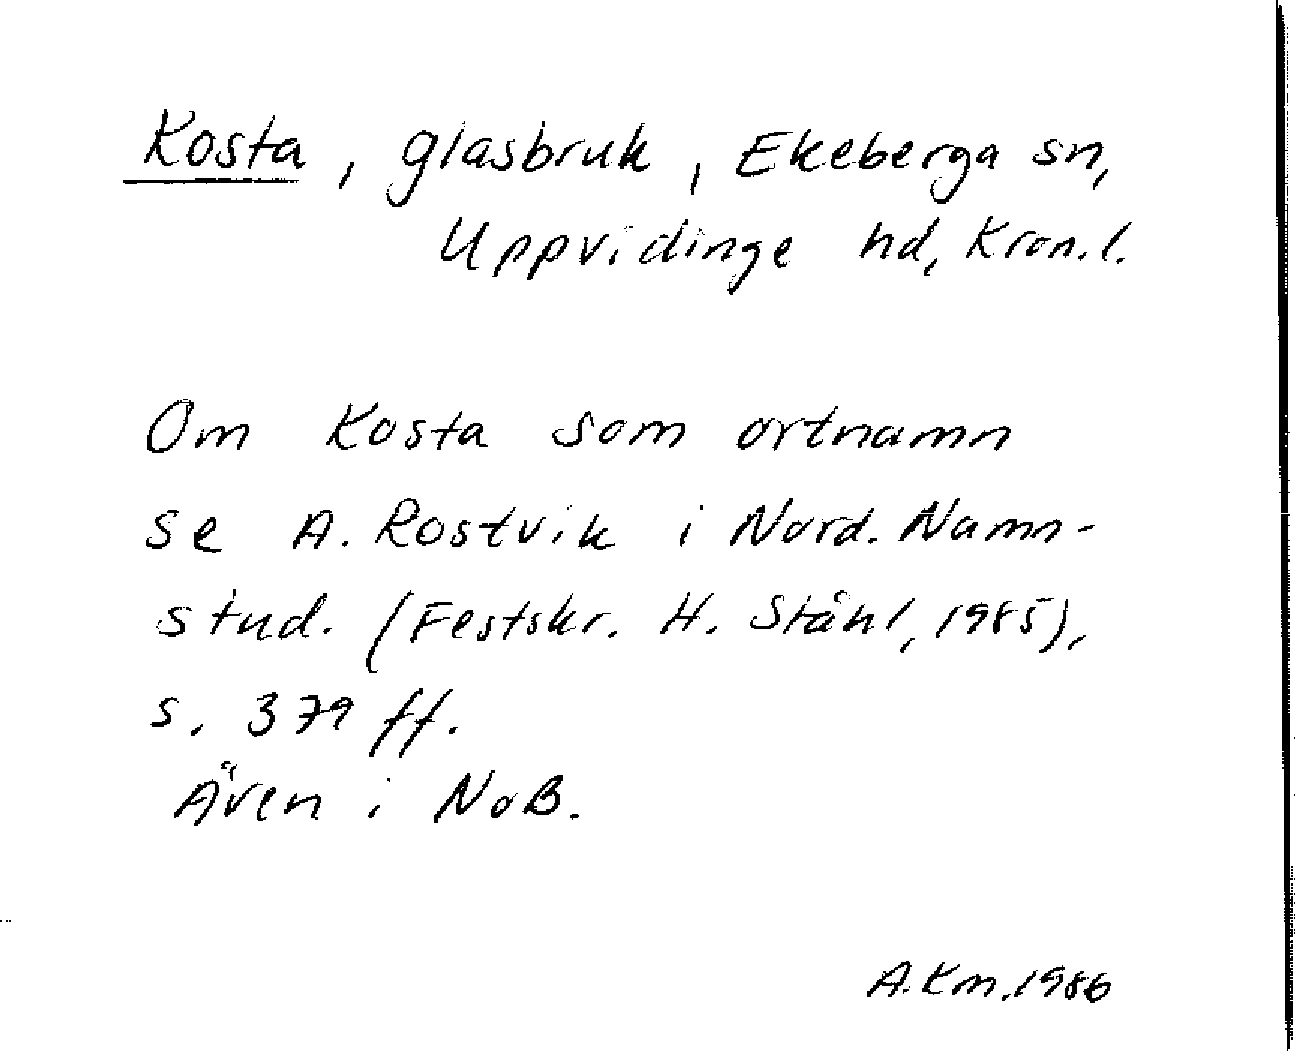 Kosta, glasbruk, Ekeberga sn,
Uppvidinge hd, Kron.l.
Om Kosta som ortnamn
se A. Rostvik i Nord. Namn-
stud. (Festskr. H. Ståhl, 1985),
s. 379 ff.
Även i NoB.
A.Km.1986